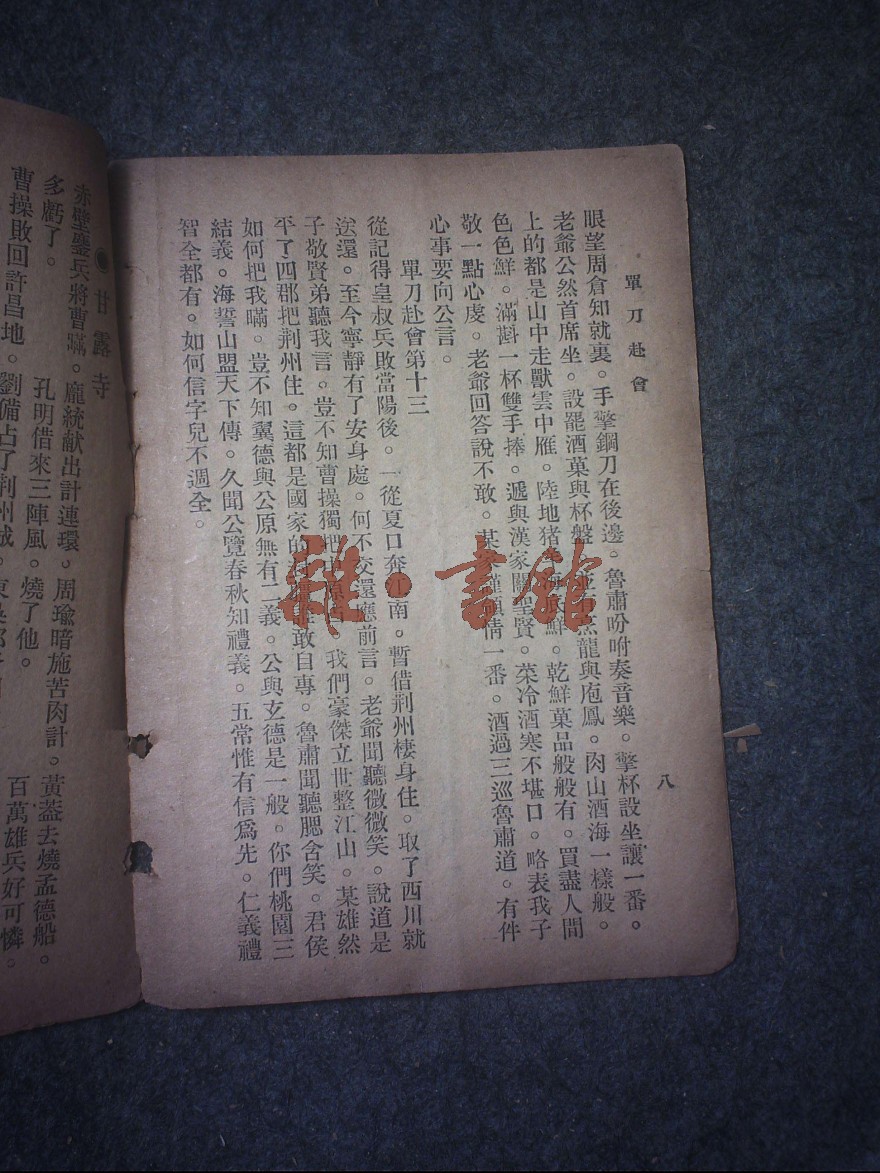 單刀赴會
八
眼望周倉知就裏。手擎鋼刀在後邊。魯肅吩咐奏音樂。擎杯設坐讓一番。
老爺公然首席坐。設罷酒菓與杯盤。龍與庖鳳。肉山酒海一樣般。
上的都是山中走獸雲中雁。陸地猪鮮。乾鮮菓品般般有。買盡人間
色色鮮。滿斟一杯雙手捧。遞與漢家關聖賢。菜冷酒寒不堪口。略表我子
敬一點心虔。老爺回答說不敢。某領情一番。酒過三巡魯肅道。有件
心事要向公言。
單刀赴會第十三
從記得皇叔兵敗當陽後。一從夏口奔江南。暫借荆州棲身住。取了西川就
送還。至今寧靜有了安身處。何不交還應前言。老爺聞聽微微笑。說道是
子敬賢弟聽我言。豈不知曹操獨把我們豪傑立世整江山。某雄然
平了四郡把荆州住。這都是國家的敢自專。魯肅聞聽腮含笑。君侯
如何把我瞞。豈不知翼德與公原無有二義。公與玄德是一般。你們桃園三
結義。海誓山盟天下傳。久聞公覽春秋知禮義。五常惟有信爲先。仁義禮
智全都有。如何信字兒不週全。
雜·書館
◉甘露寺
赤壁鏖兵將曹瞞。龐統献出計連環。周瑜暗施苦肉計。黃蓋去燒孟德船。
多虧了。孔明借來三陣風。燒了他。百萬雄兵好可憐。
曹操敗回許昌地。劉備占了荆州城。